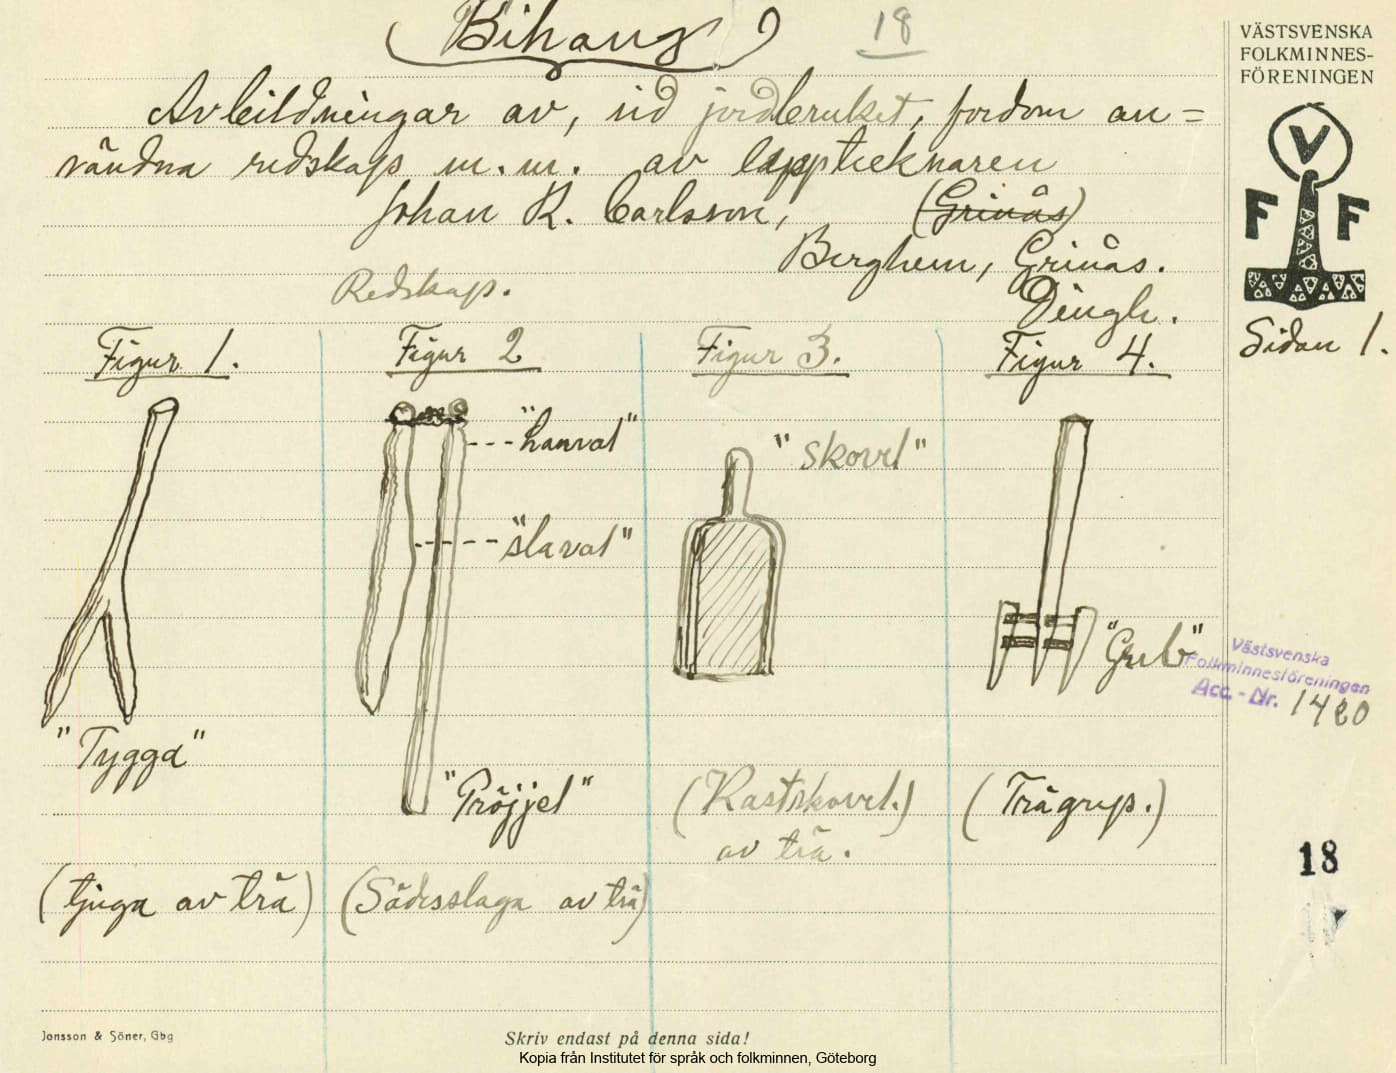 (Bihang)
18
VÄSTSVENSKA
FOLKMINNES-
FÖRENINGEN
V
F F
Avbildningar av, vid jordbruket, fordom an=
vändna redskap m.m. av lapptecknaren
Johan R. Carlsson, (Grinås)
Berghem, Grinås.
Dingle.
Redskap.
Sidan 1.
Figur 1.
Figur 2
Figur 3.
Figur 4.
"hanval"
"slaval"
"skovel"
"Grub"
Västsvenska
Folkminnesföreningen
Acc.-Nr. 1420
"Tygga"
"Pröjjel"
(Kastskovel.)
av trä.
(Trägrup.)
18
(tjuga av trä)
(Sädesslaga av trä)
Jonsson & Söner, Gbg
Skriv endast på denna sida!
Kopia från Institutet för språk och folkminnen, Göteborg